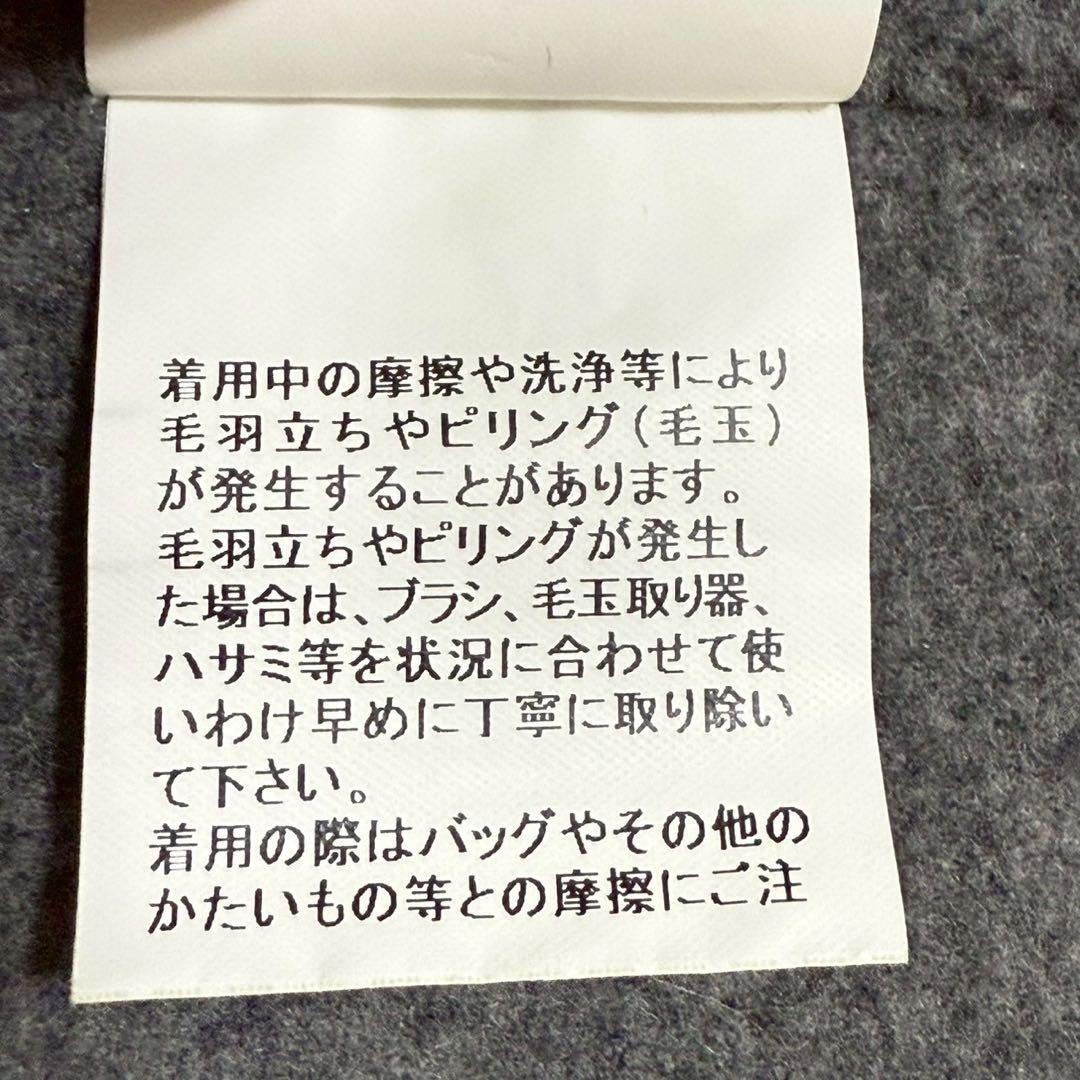 着用中の摩擦や洗浄等により
毛羽立ちやピリング(毛玉)
が発生することがあります。
毛羽立ちやピリングが発生し
た場合は、ブラシ、毛玉取り器、
ハサミ等を状況に合わせて使
いわけ早めに丁寧に取り除い
て下さい。
着用の際はバッグやその他の
かたいもの等との摩擦にご注